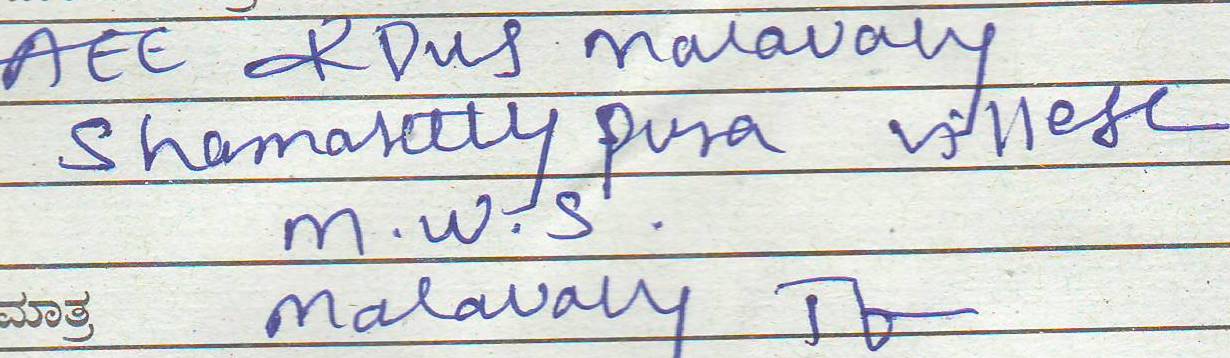 AEE RDWS Malavally
Shamasettypura villege
M.W.S.
ಮಾತ್ರ Malavally Tq